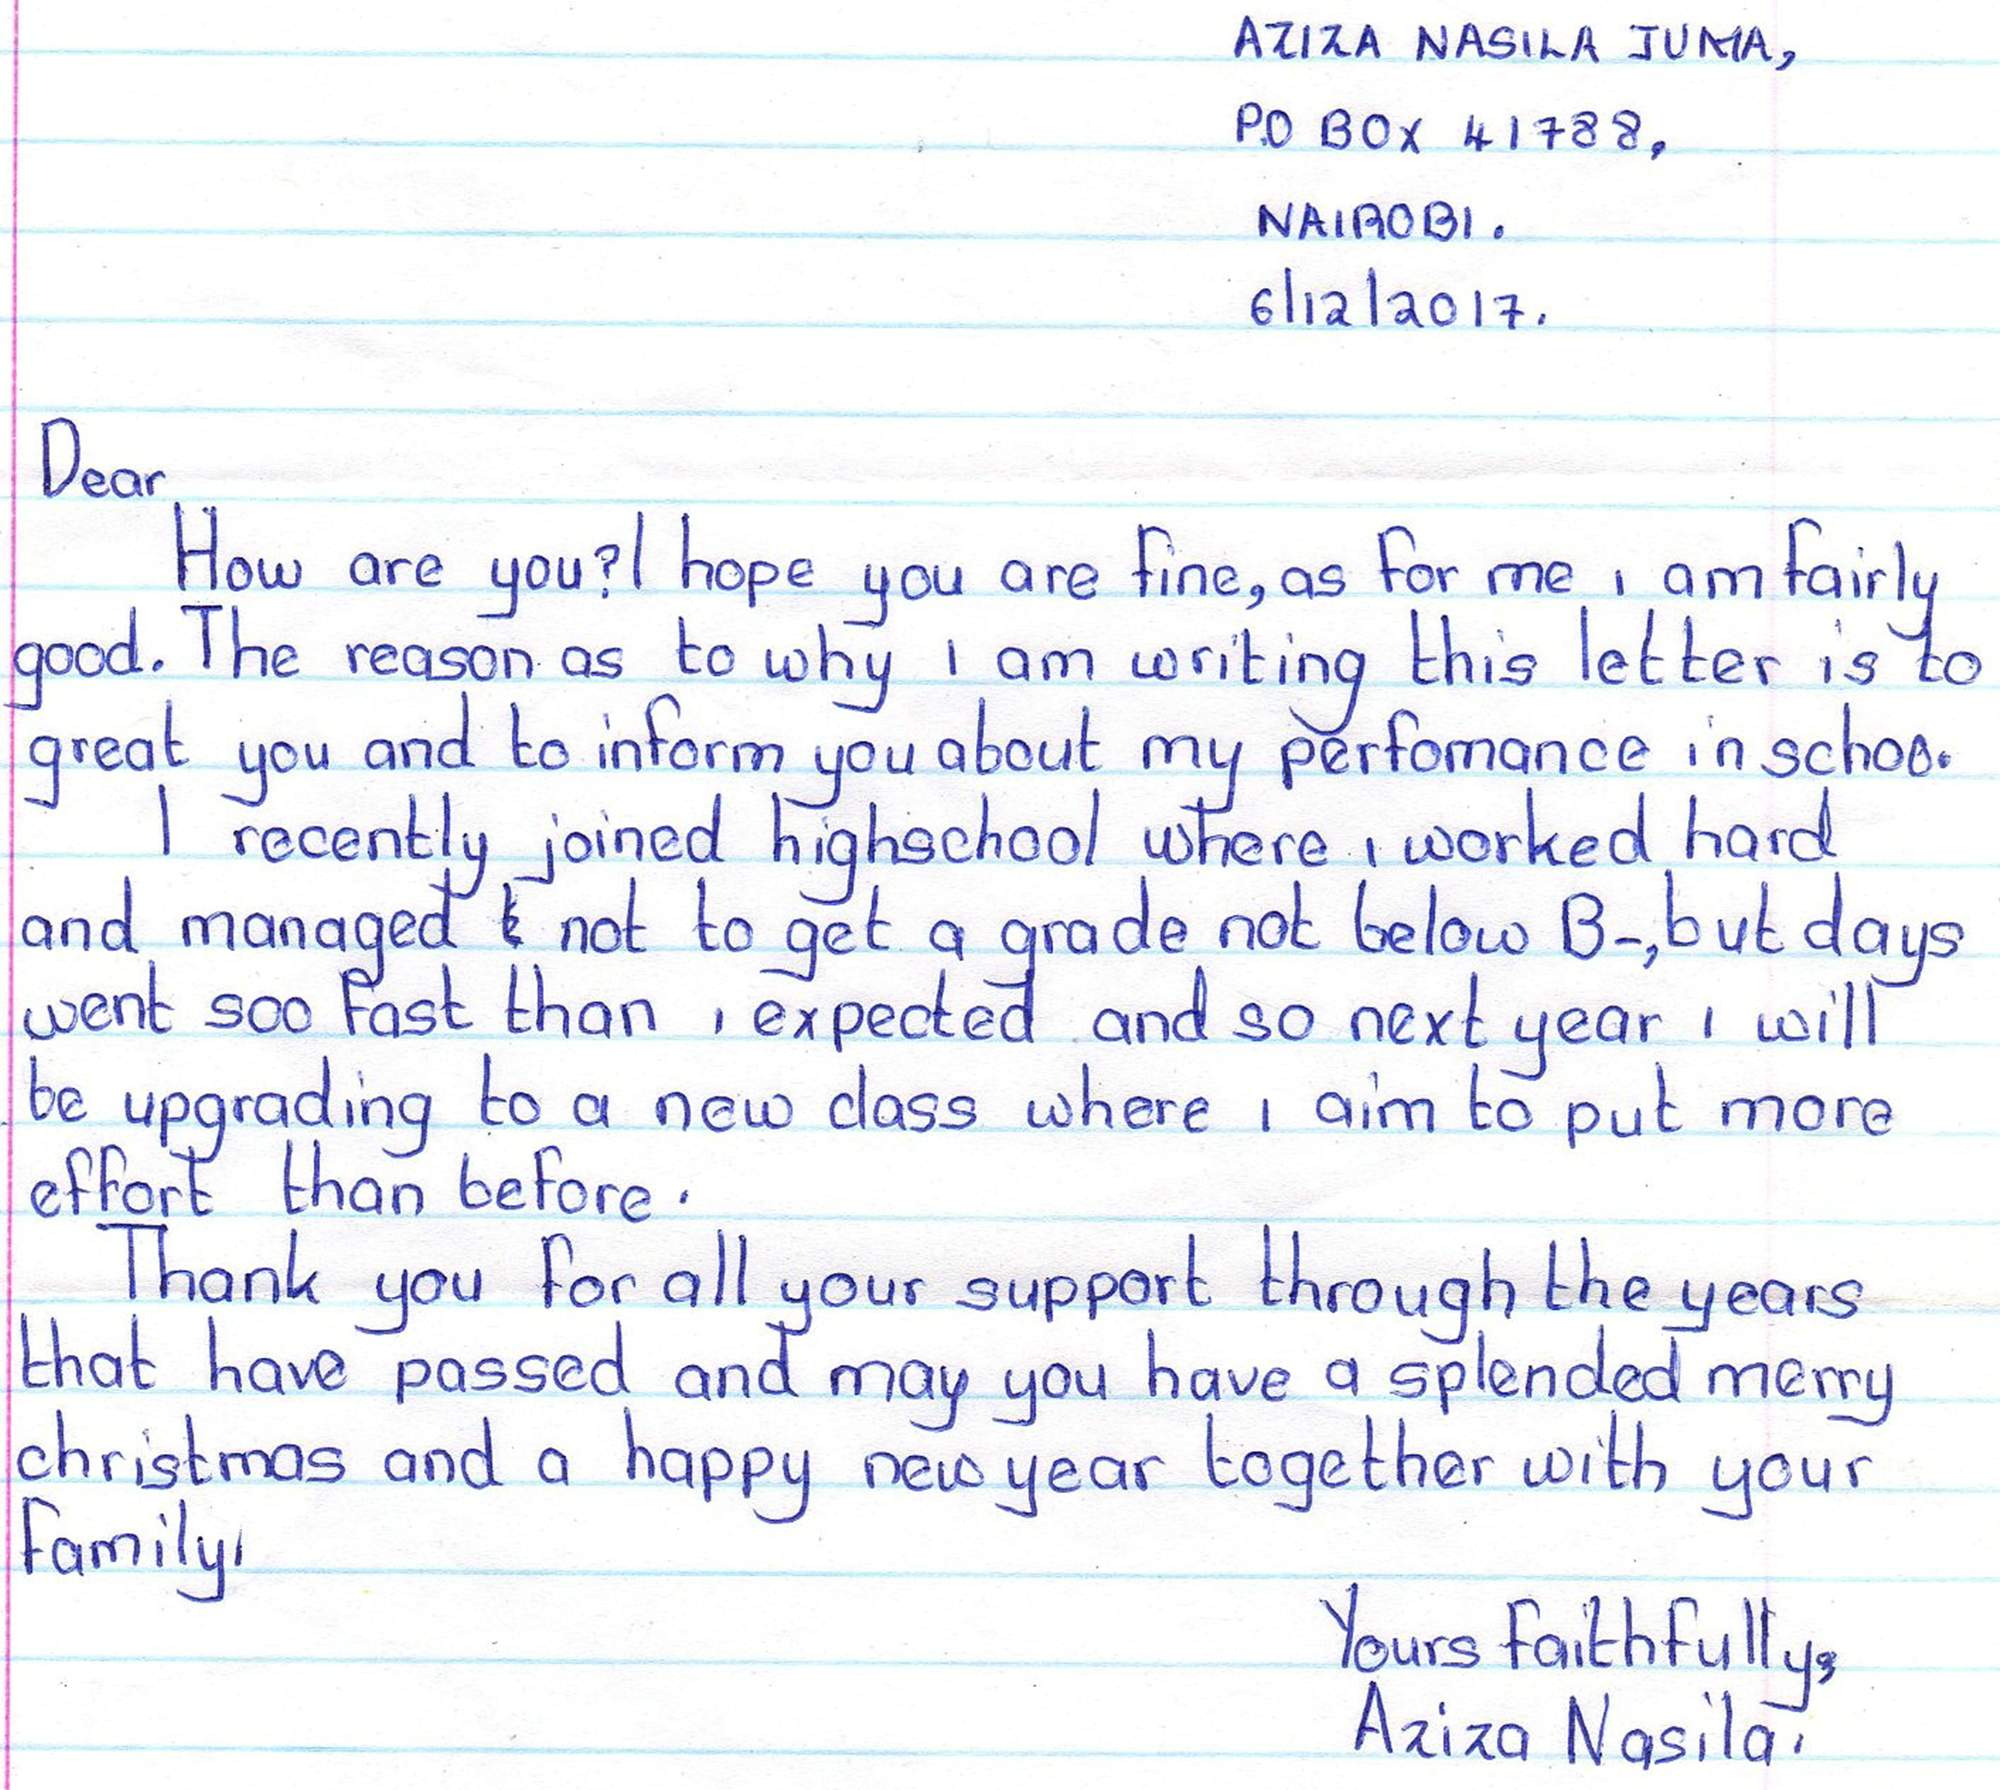 AZIZA NASILA JUMA,
P.O BOX 41788,
NAIROBI.
6/12/2017.
Dear
How are you? I hope you are fine, as for me i am fairly
good. The reason as to why I am writing this letter is to
great you and to inform you about my perfomance in schoo.
I recently joined highschool where i worked hard
and managed not to get a grade not below B-, but days
went soo fast than i expected and so next year I will
be upgrading to a new class where I aim to put more
effort than before.
Thank you for all your support through the years
that have passed and may you have a splended merry
christmas and a happy new year together with your
family.
Yours faithfully,
Aziza Nasila.